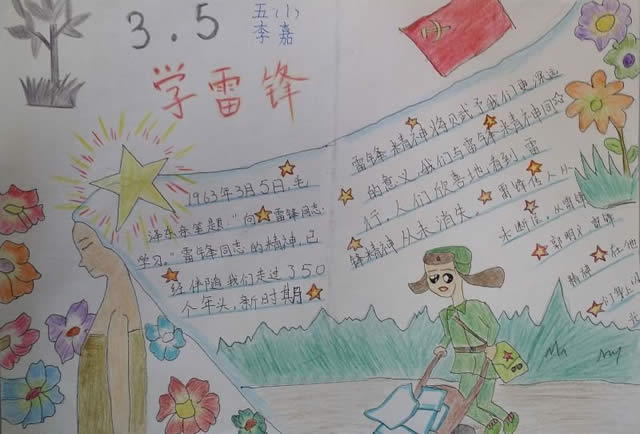 3.5
五(1)
李嘉
学雷锋
1963年3月5日,毛
泽东亲笔题:"向雷锋同志
学习。"雷锋同志的精神,已
经伴随我们走过350
个年头,新时期
雷锋精神将赋予我们更深远
的意义,我们与雷锋精神同
行,人们欣喜地看到,雷
锋精神从未消失。雷锋传人从
未断。从雷锋
郭明义
精神 在他
们